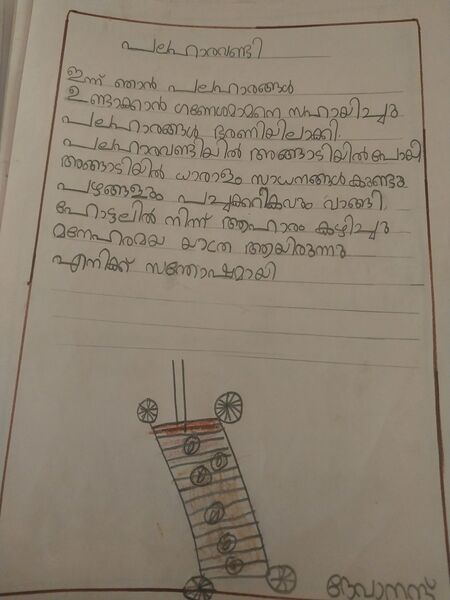 പലഹാരവണ്ടി
ഇന്ന് ഞാൻ പലഹാരങ്ങൾ
ഉണ്ടാക്കാൻ ഗണേശമാമനെ സഹായിച്ചു
പലഹാരങ്ങൾ ഭരണിയിലാക്കി.
പലഹാരവണ്ടിയിൽ അങ്ങാടിയിൽ പോയി
അങ്ങാടിയിൽ ധാരാളം സാധനങ്ങൾ കണ്ടു
പഴങ്ങളും പച്ചക്കറികളും വാങ്ങി
ഹോട്ടലിൽ നിന്ന് ആഹാരം കഴിച്ചു
മനേഹരമയ യാത്ര ആയിരുന്നു
എനിക്ക് സന്തോഷമായി
ദേവാനന്ദ്